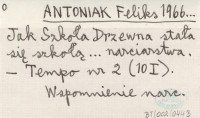 o
ANTONIAK Feliks 1966...
Jak Szkoła Drzewna stała
się szkołą... narciarstwa.
- Tempo nr 2 (10 I).
Wspomnienie narc.
BT/002/0443